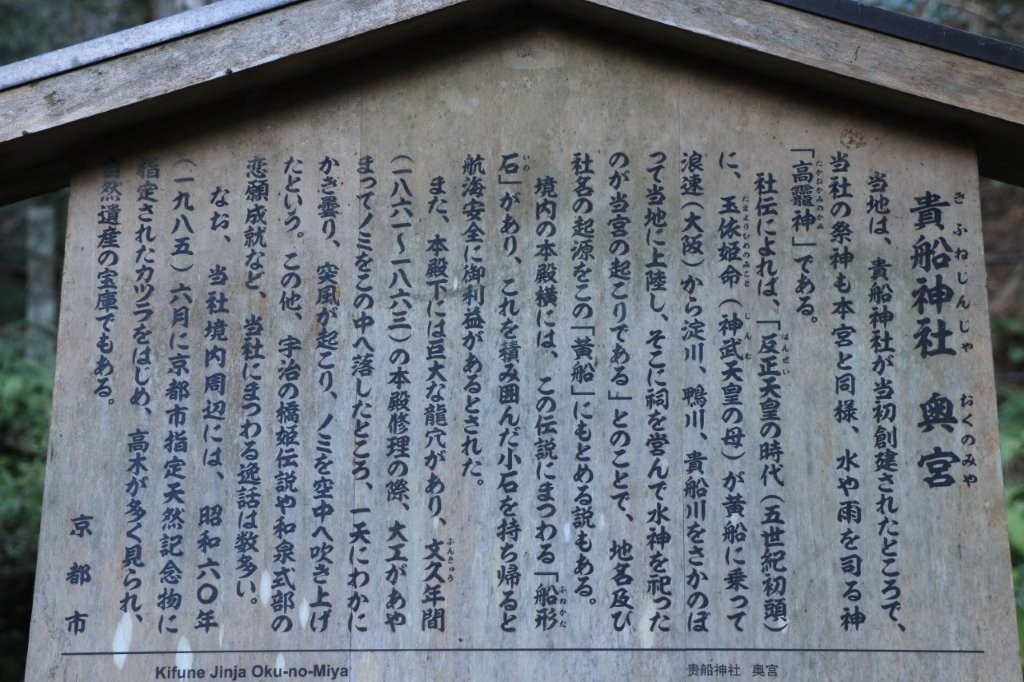 貴船神社 奥宮
きふねじんじゃ おくのみや
当地は、貴船神社が当初創建されたところで、
当社の祭神も本宮と同様、水や雨を司る神
「高龗神」である。
たかおかみのかみ
社伝によれば、「反正天皇の時代(五世紀初頭)
はんぜい
に、玉依姫命(神武天皇の母)が黄船に乗って
たまよりひめのみこと じんむ
浪速(大阪)から淀川、鴨川、貴船川をさかのぼ
って当地に上陸し、そこに祠を営んで水神を祀った
のが当宮の起こりである」とのことで、地名及び
社名の起源をこの「黄船」にもとめる説もある。
境内の本殿横には、この伝説にまつわる「船形
ふねがた
石」があり、これを積み囲んだ小石を持ち帰ると
いわ
航海安全に御利益があるとされた。
また、本殿下には巨大な龍穴があり、文久年間
ぶんきゅう
(一八六一〜一八六三)の本殿修理の際、大工があや
まってノミをこの中へ落したところ、一天にわかに
かき曇り、突風が起こり、ノミを空中へ吹き上げ
たという。この他、宇治の橋姫伝説や和泉式部の
恋願成就など、当社にまつわる逸話は数多い。
なお、当社境内周辺には、昭和六〇年
(一九八五)六月に京都市指定天然記念物に
指定されたカツラをはじめ、高木が多く見られ、
自然遺産の宝庫でもある。
京都市
Kifune Jinja Oku-no-Miya
贵船神社 奥宫